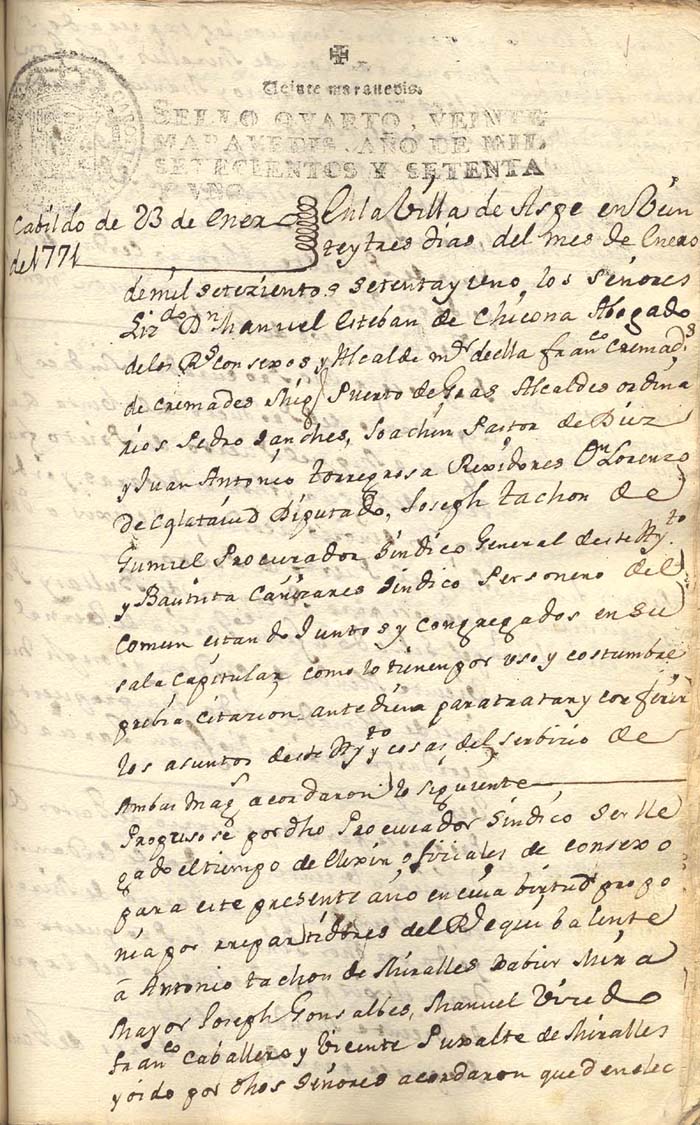 Veinte maravedis.
SELLO QVARTO, VEINTE
MARAVEDIS, AÑO DE MIL
SETECIENTOS Y SETENTA
Y UNO
Cabildo de 23 de Enero
de 1771
En la Villa de Aspe en Vein
te y tres dias del mes de Enero
de mil setezientos setenta y uno, los Señores
Liz.do Dn Manuel Esteban de Chicona Abogado
de los R.s consexos y Alcalde m.or de ella Fran.co Cremad.s
de Cremades Mig.l Puerto de Gras Alcaldes ordina
rios Pedro Sanches, Joachin Pastor de Diez
y Juan Antonio torregrosa Rexidores Dn Lorenzo
de Calataiud Diputado, Joseph tachon de
Gumiel Procurador Sindico General de este Ay.to
y Bautista Cañizares Sindico Personero del
comun estando Juntos y congregados en su
sala Capitular como lo tienen por uso y costumbre
prebia citazion antediem para tratar y conferir
los asuntos de este Ay.to y cosas del serbizio de
Ambas Mag.s acordaron lo siguiente
Propuso se por dho Procurador Sindico ser lle
gado el tiempo de Elexir oficiales de consexo
para este presente año en cuia birtud propo
nia por repartidores del R.l equibalente
a Antonio tachon de Miralles Xabier Mira
mayor Joseph Gonsalbes, Manuel
Fran.co Caballero y Vicente Puxalte de Miralles
y oido por dhos Señores acordaron que den elec